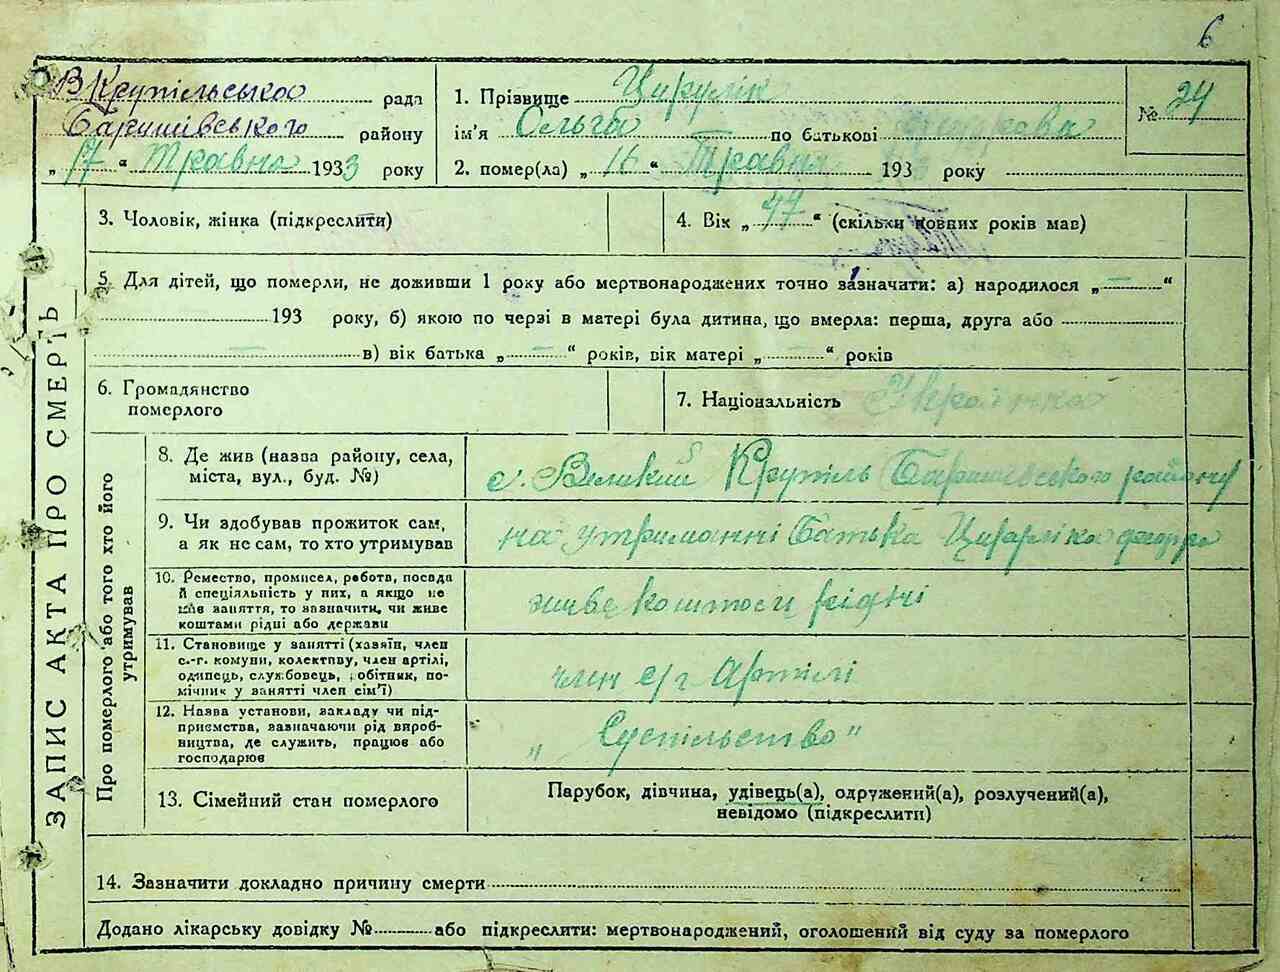 6
В Крупільська рада
Баришівського району
„ 17 “ Травня 1933 року
1. Прізвище Цирулік
ім'я Ольга по батькові
2. помер(ла) „ 16 “ Травня 193 року
№ 24
3. Чоловік, жінка (підкреслити)
4. Вік „ 47 “ (скільки повних років мав)
5. Для дітей, що померли, не доживши 1 року або мертвонароджених точно зазначити: а) народилося „ — “
193 року, б) якою по черзі в матері була дитина, що вмерла: перша, друга або
— в) вік батька „ — “ років, вік матері „ — “ років
6. Громадянство
померлого
7. Національність Українка
ЗАПИС АКТА ПРО СМЕРТЬ
Про померлого або того хто його
утримував
8. Де жив (назва району, села,
міста, вул., буд. №)
с. Великий Крупіль Баришівського району
9. Чи здобував прожиток сам,
а як не сам, то хто утримував
на утриманні Батька
10. Ремество, промисел, работа, посада
й спеціяльність у них, а якщо не
мав заняття, то зазначити, чи живе
коштами рідні або держави
живе коштоси рідні
11. Становище у занятті (хазяїн, член
с.-г. комуни, колективу, член артілі,
одинець, службовець, робітник, по-
мічник у занятті член сім'ї)
член с/г Артілі
12. Назва установи, закладу чи під-
приємства, зазначаючи рід вироб-
ництва, де служить, працює або
господарює
„ Суспільство "
13. Сімейний стан померлого
Парубок, дівчина, удівець(а), одружений(а), розлучений(а),
невідомо (підкреслити)
14. Зазначити докладно причину смерти
Додано лікарську довідку № або підкреслити: мертвонароджений, оголошений від суду за померлого